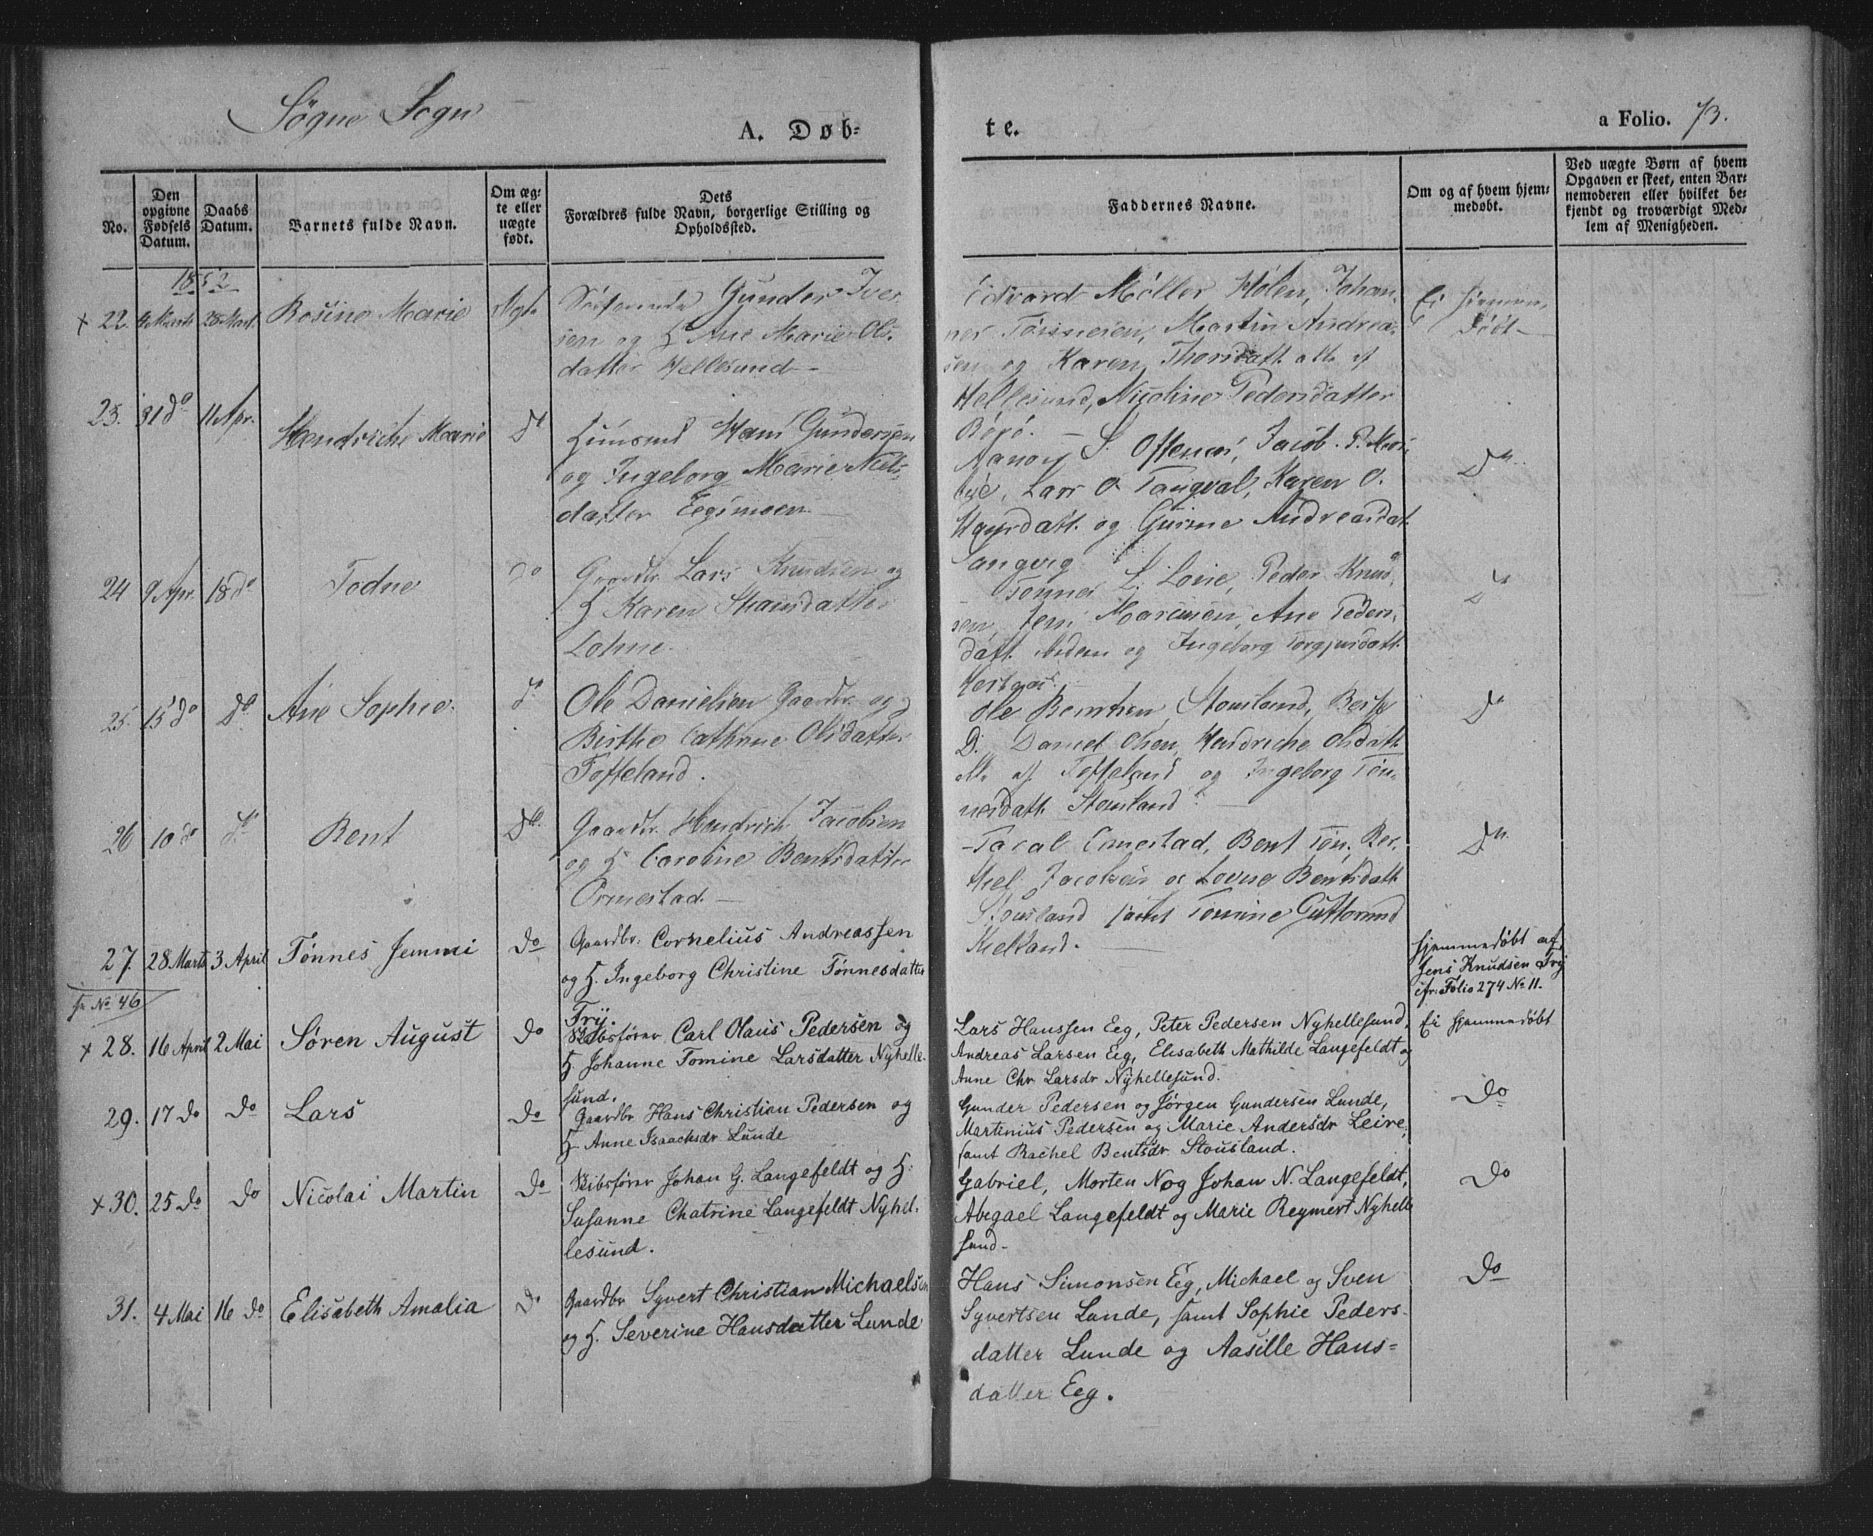 Søgne Sogn
A. Døb-
te.
a Folio. 73.
No.
Den opgivne Fødsels Datum.
Daabs Datum.
Barnets fulde Navn.
Om ægte eller uægte født.
Dets Forældres fulde Navn, borgerlige Stilling og Opholdssted.
Faddernes Navne.
Om og af hvem hjemmedøbt.
Ved uægte Børn af hvem Opgaven er skeet, enten Barnemoderen eller hvilket bekjendt og troværdigt Medlem af Menigheden.
1852
x 22. Marts Rosine Marie Ægte Gunder Iver
sen og H Ane Marie Ols
datter Hellesund
Edvard Møller Holen, Johan
Martin Andrea
sen og Karen Thorsdatt. alle af
Hellesund, Nicoline Pedersdatter
Ei hjemme
døbt
23. 31 do 11 Apr. Hendriche Marie Do Huusmd Hans Gundersen
og Ingeborg Marie Niels
datter Eegsmoen
Jacob P.
Lars O. Tangval, Karen O.
Hansdatt. og Gurine Andreasdat
Langvig
Do
24 9 Apr. 18 do Todne Do Gaardbr. Lars Knudsen og
H Karen
Lohne.
Peder Knud
sen, Ane Peders
datt. og Ingeborg Torgjusdatt.
25. 15 do Do Ane Sophie Do Ole Danielsen Gaardbr. og
Birthe Cathrine Olsdatter
Toffeland.
Ole Berntsen Stousland,
D. Daniel Olsen, Hendriche Olsdatt
alle af Toffeland og Ingeborg Tøn
nesdatt Stousland
Do
26 10 do do Bent Do Gaardbr. Hendrich Jacobsen
og H Caroline Bentsdatter
Ormestad.
Bent Tøn.
Jacobsen og Bentsdatt
Stousland samt Tomine Guttormsd
Kielland.
Do
27. 28 Marts 3 April Tønnes Jemmi Do Gaardbr. Cornelius Andreassen
og H. Ingeborg Christine Tønnesdatter
Try.
Hjemmedøbt af
Jens Knudsen Try
cfr. Folio 274 No 11.
fr No 46
x 28. 16 April 2 Mai Søren August Do Skibsfører Carl Olaus Pedersen og
H. Johanne Tomine Larsdatter Nyhelle
sund.
Lars Hanssen Eeg, Peter Pedersen Nyhellesund,
Andreas Larsen Eeg, Elisabeth Mathilde Langefeldt og
Anne Chr. Larsdr Nyhellesund.
Ei hjemmedøbt
29. 17 do Do Lars Do Gaardbr Hans Christian Pedersen og
H. Anne Isaachsdr Lunde
Gunder Pedersen og Jørgen Gundersen Lunde,
Martinius Pedersen og Marie Andersdr Leire,
samt Rachel Bentsdr Stousland.
Do
x 30. 25 do Do Nicolai Martin Do Skibsfører Johan G. Langefeldt og H.
Susanne Chatrine Langefeldt Nyhel-
lesund.
Gabriel, Morten N og Johan N. Langefeldt,
Abegael Langefeldt og Marie Reymert Nyhelle
sund
Do
31. 4 Mai 16 do Elisabeth Amalia Do Gaardbr Syvert Christian Michaelsen
og H. Severine Hansdatter Lunde
Hans Simonsen Eeg, Michael og Sven
Syvertsen Lunde, samt Sophie Peders-
datter Lunde og Aasille Hans=
datter Eeg.
Do